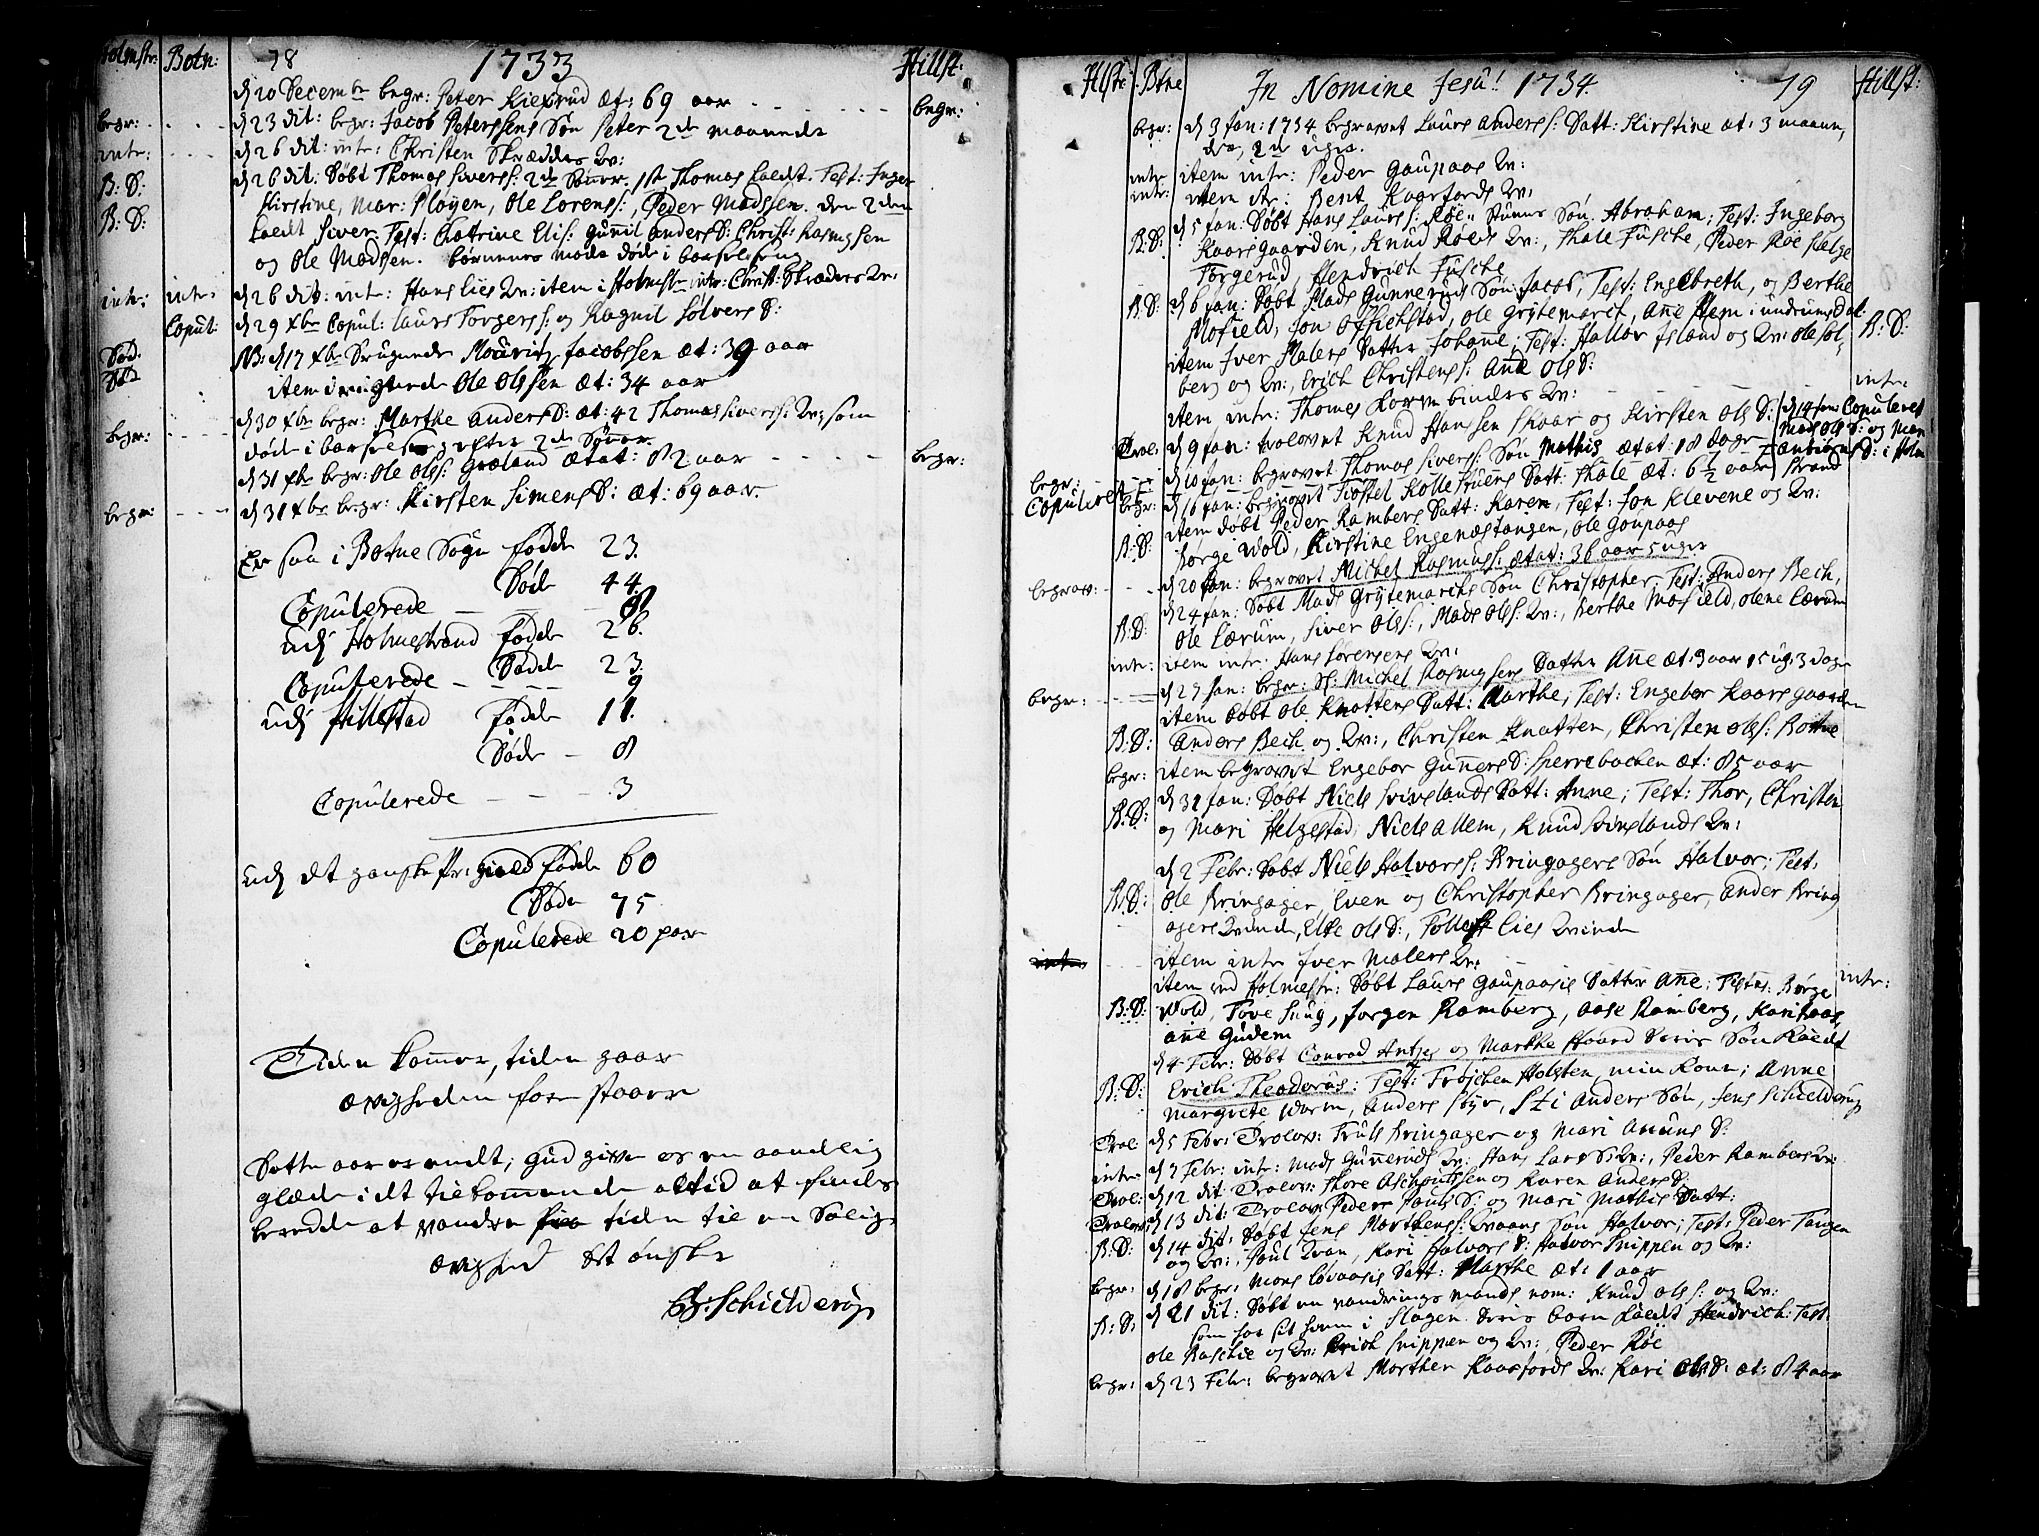 Holmstr: Botn: 78 1733 Hillst:
d 20 Decembr begr: Peter Kiexrud æt: 69 aar - - - - - - begr:
begr: - - - d 23 dit: begr: Jacob Peterssens Søn Peter 2de maaneder
intr: - - - d 26 dit: intr: Christen Skrædders Qv:
B: D: d 26 dit: Døbt Thomas Siverss: 2de Sønner. 1ste Thomas kaldt. Test: Inger
Kirstine, Mar: Ployen, Ole Lorenss:, Peder Madssen. den 2den
B: D: kaldt Siver. Test: Chatrine Elis: Gunnil Anders D: Christ: Rasmussen
og Ole Madssen. børnenes moder døde i barselseng
intr: intr: d 26 dit: intr: Hans Lies Qv: item i Holmestr intr: Christ: Skræders Qv:
Copul: d 29 xbr Copul: Laurs Torgerss: og Ragnil Sølvers D:
Død. NB: d 17 xbr Druknede Mouritz Jacobssen æt: 39 aar
Død item Ole Olssen æt: 34 aar
begr: - - - d 30 xbr begr: Marthe Anders D: æt: 42 Thomas Siverss: Qv; som
døde i barselseng efter 2de Sønner.
d 31 xbr begr: Ole Olss: Græland ætat: 82 aar - - - - begr:
begr: - - - d 31 xbr begr: Kirsten Simens D: æt: 69 aar.
Er saa i Botne Sogn fødde 23.
Døde 44.
Copulerede - - - - 8
udj Holmestrand fødde 26.
Døde 23.
Copulerede - - - - 9
udj Hillestad fødde 11.
Døde - 8
Copulerede - - - 3
udj det ganske Pr: gield fødde 60
Døde 75
Copulerede 20 par
Tiden kommer, tiden gaar
ævigheden fore staar
Dette aar er endt; Gud give os en aandelig
glæde i det tilkommende altid at findes
berede at vandre fra tiden til en Salig
ævighed det ønsker
Schielderup
Hillst: Btne In Nomine Jesu!! 1734. 79 Hillst:
begr: d 3 Jan: 1734 begravet Laurs Anderss: Datt: Kirstine æt: 3 maane,
der, 2de uger.
intr item intr: Peder Gaupaas Qv:
intr: item itr: Bent Kaarsfords Qv:
B: D: d 5 Jan: Døbt Hans Laurss: Røestuens Søn Abraham; Test: Ingeborg
Kaarsgaarden, Knud Røeds Qv:, Thale Fusche, Peder Røe Helge
Torgerud, Hendrich Fusche
B: D: d 6 Jan: Døbt Mads Gunneruds Søn Jacob, Test: Engebreth, og Berthe
Mofield, Jon Offichstad, Ole Grytemarch, Ane Hem i undrumsdal
item Iver Malers Datter Johanne; Test: Hallov Island og Qv: Ole Sol, B: D:
berg og Qv:, Erich Christenss: Ane Ols D:
item intr: Thomes Kornbinders Qv: - - - - - intr:
Trol: d 9 Jan: trolovet Knud Hanssen Skaar og Kirsten Ols D: d 14 Jan Copuleret
Mads Ols S: og Mari
begr: d 10 Jan: begravet Thomas Siverss: Søn Mathis ætat: 18 dage Anbiørns D: i Holm
Copuleret begr: d 16 Jan: begravet Tostel Kollestuens Datt: Thale æt: 6 1/2 aar strand
B: D: item døbt Peder Rambergs Datt: Karen, Test: Jon Klevene og Qv:
Børge Wold, Kirstine Engenæstangen, Ole Goupaas
begrav: - - - d 20 Jan: begravet Michel Rasmuss: ætat: 36 aar 5 uger
B: D: d 24 Jan: Døbt Mads Grytemarchs Søn Christopher. Test: Anders Bech,
Ole Lærum, Siver Olss:, Mads Olss: Qv:, Berthe Mofield, Olene Lærum
intr: item intr. Hans Sorensens Qv:
begr: - - - d 27 Jan: begr: Sl: Michel Rasmussens Datter Ane æt: 3 aar 15 ug: 3 dage
B: D: item døbt Ole Knattens Datt: Marthe; Test: Engebor Kaarsgaarden
Anders Bech og Qv:, Christen Knatten, Christen Olss: Bottne
begr: item begravet Engebor Gunners D: Sperrebachen æt: 85 aar
B: D: d 31 Jan: Døbt Niels Srivelands Datt: Anne; Test: Thor, Christen
og Mari Helgestad; Niels Allem, Knud Srivelands Qv:
B: D: d 2 Febr: Døbt Niels Halvorss: Bringagers Søn Halvor; Test:
Ole Bringager, Even og Christopher Bringager, Ander Bring
agers Qvinde, Elke Ols D:, Tollef Lies Qvinde
item intr Iver Malers Qv: - - - intr:
B: D: item ved Holmestr: Døbt Laurs Gaupaasis Datter Ane; Testes: Børge
Wold, Tove Snug, Jorgen Ramberg, Aase Ramberg, Kari Aas,
Ane Gudem
B: D: d 4 Febr: Døbt Conrad Antjes og Marthe Haard deris Søn Kaldt
Erich Theodorus: Test: Frøschen Holsten, min Kone; Anne
Margrete Worm, Anders Støyr, Sti Anders Søn, Jens Schielderup
Trol: d 5 Febr: Trolov: Truls Bringager og Mari Amuns D:
intr d 7 Febr: intr: Mads Gunneruds Qv: Hans Lars S: Qv:, Peder Rambers Qv:
Trol: d 12 dit: Trolov: Thore Aschoutssen og Karen Anders D:
Trolov: d 13 dit: Trolov Peder Pauls S: og Mari Mathis Datt:
B: D: d 14 dit: Døbt Jens Mortenss: Qvaans Søn Halvor; Test: Peder Tangen
og Qv:, Poul Qvan, Kari Halvors D: Halvor Snippen og Qv:
begr: d 18 begr: Mons Løvaasis Datt: Marthe æt: 1 aar
B: D: d 21 dit: Døbt en vandrings mands nom: Knud Olss: og Qv:
som har sit hiem i Slagen deris barn kaldt Hendrich: Test:
Ole Baschie og Qv: Erich Snippen og Qv:, Peder Røe
begr: d 23 Febr: begravet Morthen Kaarsfords Qv: Kari Ols D: æt: 84 aar